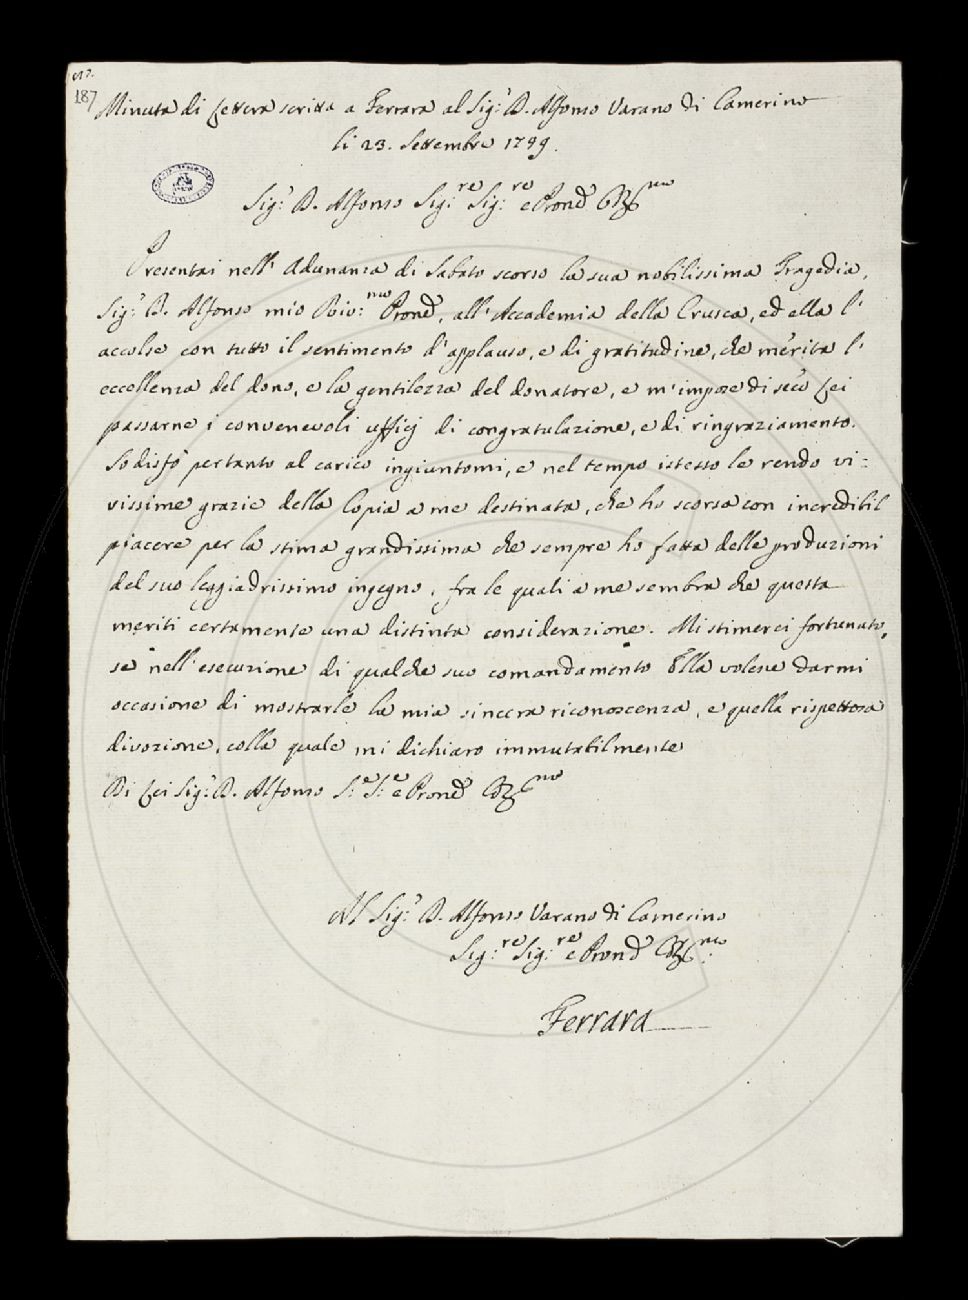 187
Minuta di Lettera scritta a Ferrara al Sig.r D. Alfonso Varano di Camerino
li 23. Settembre 1749.
Sig.r D. Alfonso Sig.re Sig.re e Pron
Presentai nell' Adunanza di Sabato scorso la sua nobilissima Tragedia,
Sig.r D. Alfonso mio Pron, all' Accademia della Crusca, ed ella l'
accolse con tutto il sentimento d'applauso, e di gratitudine, che merita l'
eccellenza del dono, e la gentilezza del donatore, e m'impose di seco Lei
passarne i convenevoli ufficj di congratulazione, e di ringraziamento.
Sodisfò pertanto al carico ingiuntomi, e nel tempo istesso le rendo vi:
vissime grazie della Copia a me destinata, che ho scorsa con incredibil
piacere per la stima grandissima che sempre ho fatta delle produzioni
del suo leggiadrissimo ingegno, fra le quali a me sembra che questa
meriti certamente una distinta considerazione. Mi stimerei fortunato,
se nell'esecuzione di qualche suo comandamento Ella volesse darmi
occasione di mostrarle la mia sincera riconoscenza, e quella rispettosa
divozione, colla quale mi dichiaro immutabilmente
Di Lei Sig.r D. Alfonso S.e S.e e Pron
Al Sig.r D. Alfonso Varano di Camerino
Sig.re Sig.re e Pron
Ferrara